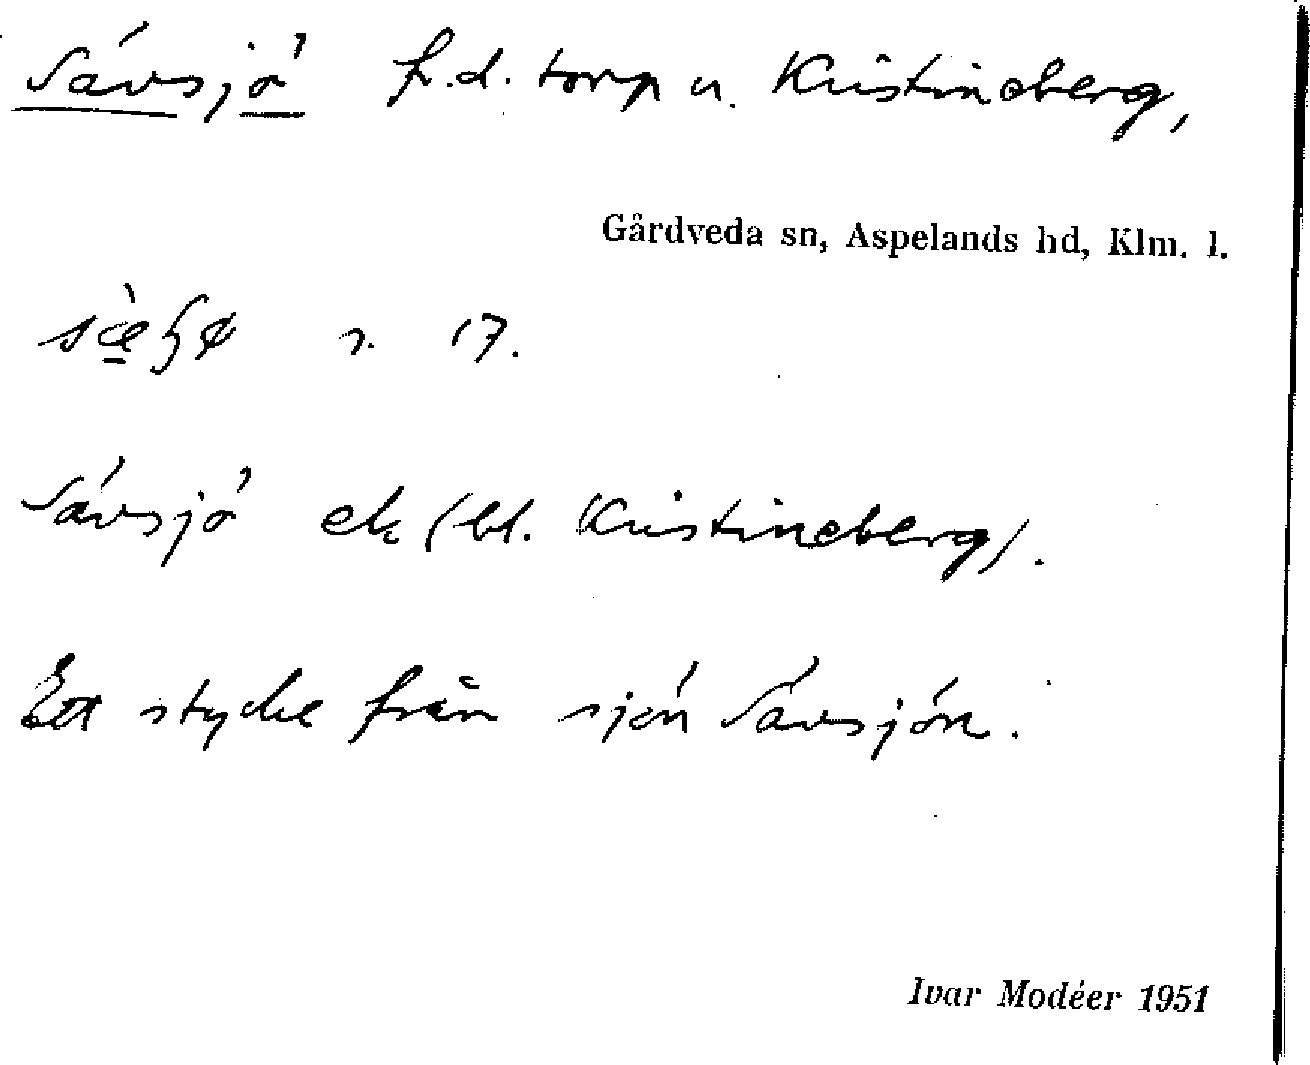 Sävsjö f.d. torp u. Kristineberg,
Gårdveda sn, Aspelands hd, Klm. l.
s. 17.
Sävsjö ek (bl. Kristineberg).
Ett stycke från sjön Sävsjön.
Ivar Modéer 1951